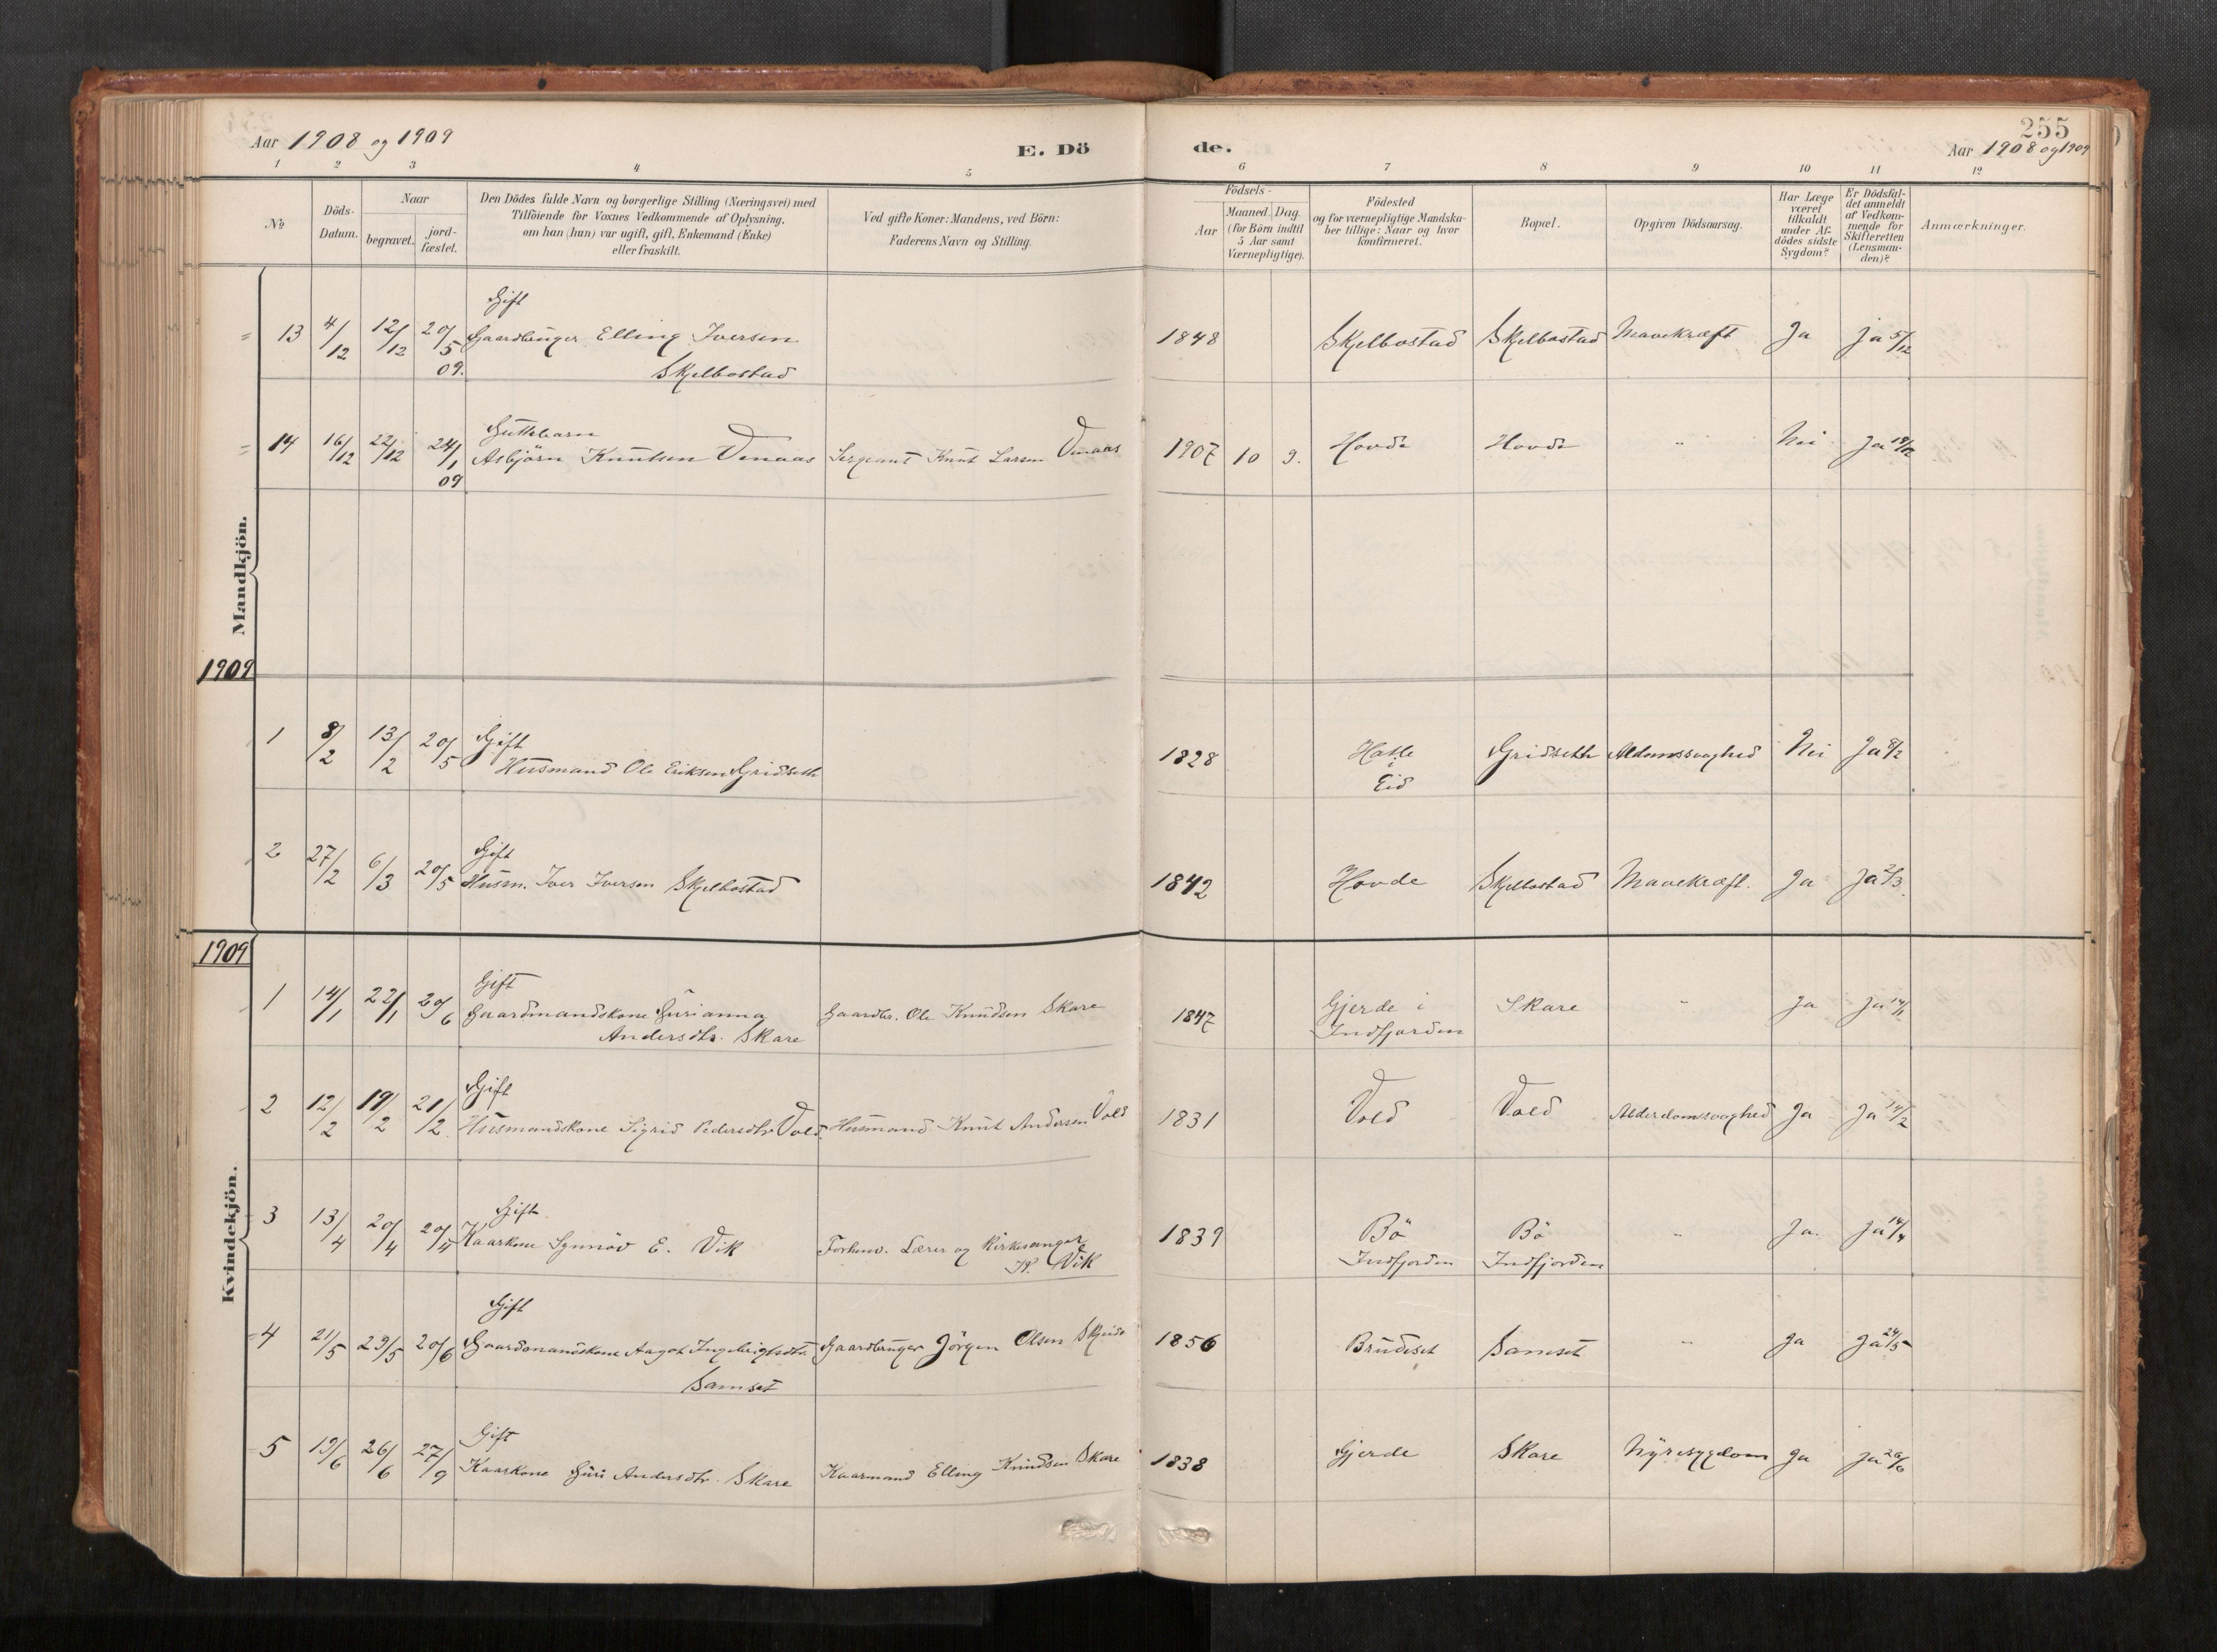 Aar 1908 og 1909
E. Dö
de.
255
Aar 1908 og 1909
1 2 3 4 5 6 7 8 9 10 11 12
No
Döds-
Datum.
Naar
begravet.
jord-
fæstet.
Den Dödes fulde Navn og borgerlige Stilling (Næringsvei) med
Tilföiende for Voxnes Vedkommende af Oplysning,
om han (hun) var ugift, gift, Enkemand (Enke)
eller fraskilt.
Ved gifte Koner: Mandens, ved Börn:
Faderens Navn og Stilling.
Födsels-
Aar
Maaned. Dag.
(for Börn indtil
5 Aar samt
Værnepligtige).
Födested
og for værnepligtige Mandska-
ber tillige: Naar og hvor
konfirmeret.
Bopæl.
Opgiven Dödsaarsag.
Har Læge
været
tilkaldt
under Af-
dödes sidste
Sygdom?
Er Dödsfal-
det anmeldt
af Vedkom-
mende for
Skifteretten
(Lensman-
den)?
Anmærkninger.
Mandkjön.
Gift
= 13 4/12 12/12 20/5 Gaardbruger Elling Iversen 1848 Skjelbostad Skjelbostad Mavekræft Ja ja 5/12
09. Skjelbostad
Guttebarn
= 14 16/12 22/12 24/1 Asbjörn Knutsen Venaas Sergeant Knut Larsen Venaas 1907 10 9. Hovde Hovde " Nei Ja 19/12
09
1909
1 8/2 13/2 20/5 Gift
Husmand Ole Eriksen Gridseth 1828 Hatle i Eid Gridseth Aldomssvaghed Nei Ja 8/2
2 27/2 6/3 20/5 Gift
Husm. Iver Iversen Skjelbostad 1842 Hovde Skjelbostad Mavekræft. Ja Ja 2/3.
1909
Kvindekjön.
Gift
1 14/1 22/1 20/6 Gaardmandskone Gurianna Gaardbr. Ole Knudsen Skare 1847 Gjerde i Skare " Ja Ja 14/1
Andersdtr. Skare Indfjorden
Gift
2 12/2 19/2 21/2. Husmandskone Sigrid Pedersdtr Vold. Husmand Knut Andersen Vold 1831 Vold Vold Alderdomssvaghed Ja Ja 14/2
Gift
3 13/4 20/4 20/4 Kaarkone Synnöv E. Vik Forhenv. Lærer og Kirkesanger 1839 Bö Bö " Ja. Ja 14/4
Vik Indfjorden Indfjorden
Gift
4 21/5 29/5 20/6 Gaardmandskone Aagot Ingebrigtsdtr. Gaardbruger Jörgen Olsen 1856 Brudeset Samset " Ja Ja 24/5
Samset
Gift
5 19/6 26/6 27/9 Kaarkone Guri Andersdtr. Skare Kaarmand Elling Knudsen Skare 1838 Gjerde Skare Nyresygdom Ja Ja 20/6